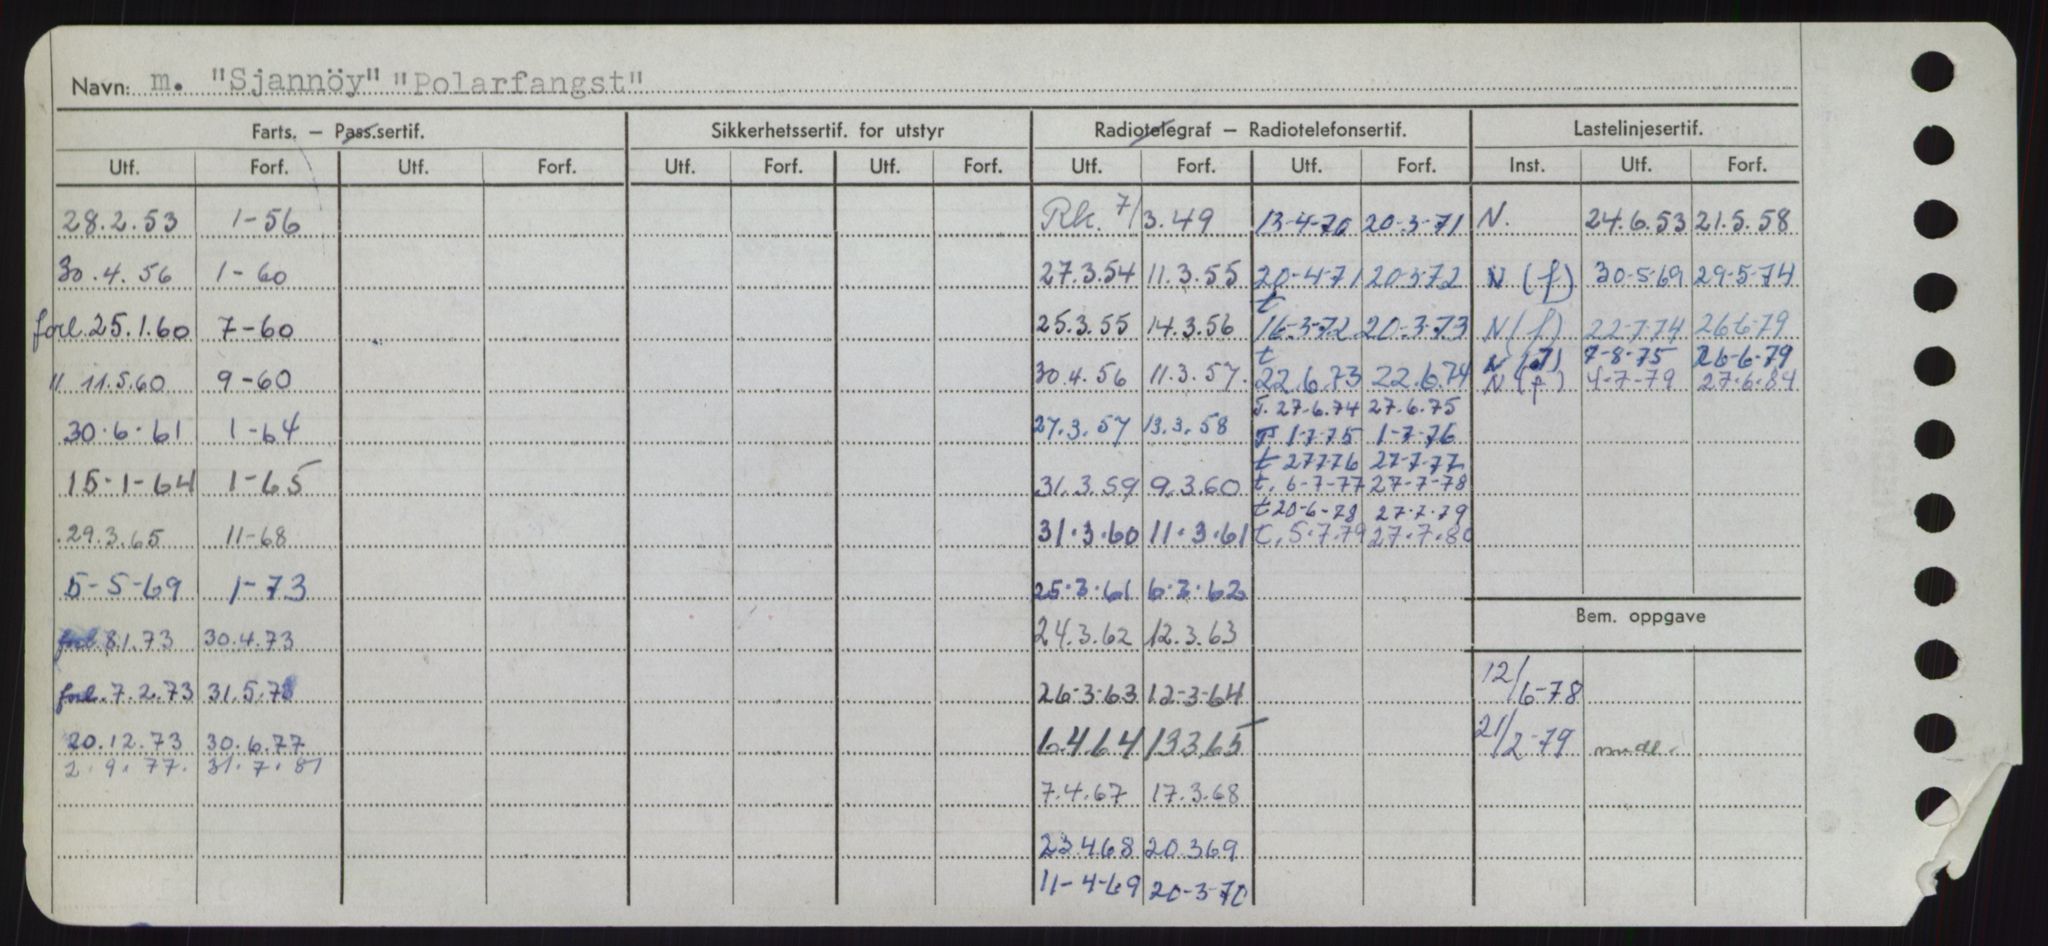 Navn: m. "Sjannöy" "Polarfangst"
Farts. – Pass.sertif. Sikkerhetssertif. for utstyr Radiotelegraf – Radiotelefonsertif. Lastelinjesertif.
Utf. Forf. Utf. Forf. Utf. Forf. Utf. Forf. Utf. Forf. Utf. Forf. Inst. Utf. Forf.
28.2.53 1-56 Rk. 7/3.49 13-4-70 20-3-71 N. 24.6.53 21.5.58
30.4.56 1-60 27.3.54 11.3.55 20-4-71 20-3-72 N (f) 30-5-69 29-5-74
forl. 25.1.60 7-60 25.3.55 14.3.56 t 16-3-72 20-3-73 N (f) 22-7-74 26-6-79
N (f) 7-8-75 26-6-79
" 11.5.60 9-60 30.4.56 11.3.57. t 22.6.73 22.6.74 N (f) 4-7-79 27.6.84
T. 27.6.74 27.6.75
30.6.61 1-64 27.3.57 13.3.58 T. 1-7-75 1-7-76
t 27776 27-7-77
15-1-64 1-65 31.3.59 9.3.60 t. 6-7-77 27-7-78
t 20-6-78 27.7.79
29.3.65 11-68 31.3.60 11.3.61 t. 5.7.79 27.7.80
5-5-69 1-73 25.3.61 6.3.62
Bem. oppgave
forl. 8.1.73 30.4.73 24.3.62 12.3.63
forl. 7.2.73 31.5.73 26-3-63 12-3-64 12/6-78
20.12.73 30.6.77 6.4.64 13365 21/2-79
2.9.77. 31.7.81
7.4.67 17.3.68
23468 20.369
11-4-69 20-3-70